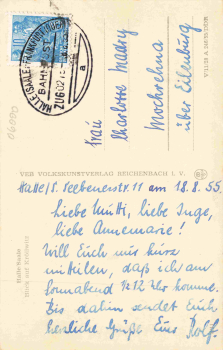 HALLE (SAALE)-FRANKFURT (ODER)
BAHNPOST
ZUG 0276
a
Frau
Charlotte Madry
Mockrehna
über Eilenburg
VEB VOLKSKUNSTVERLAG REICHENBACH I. V.
Halle/S. Seebenerstr 11 am 18.8.55.
Liebe Mutti, liebe Inge,
liebe Annemarie!
Will Euch nur kurz
mitteilen, daß ich am
Sonnabend 1212 Uhr komme.
Bis dahin sendet Euch
herzliche Grüße Euer Rolf.
Halle/Saale